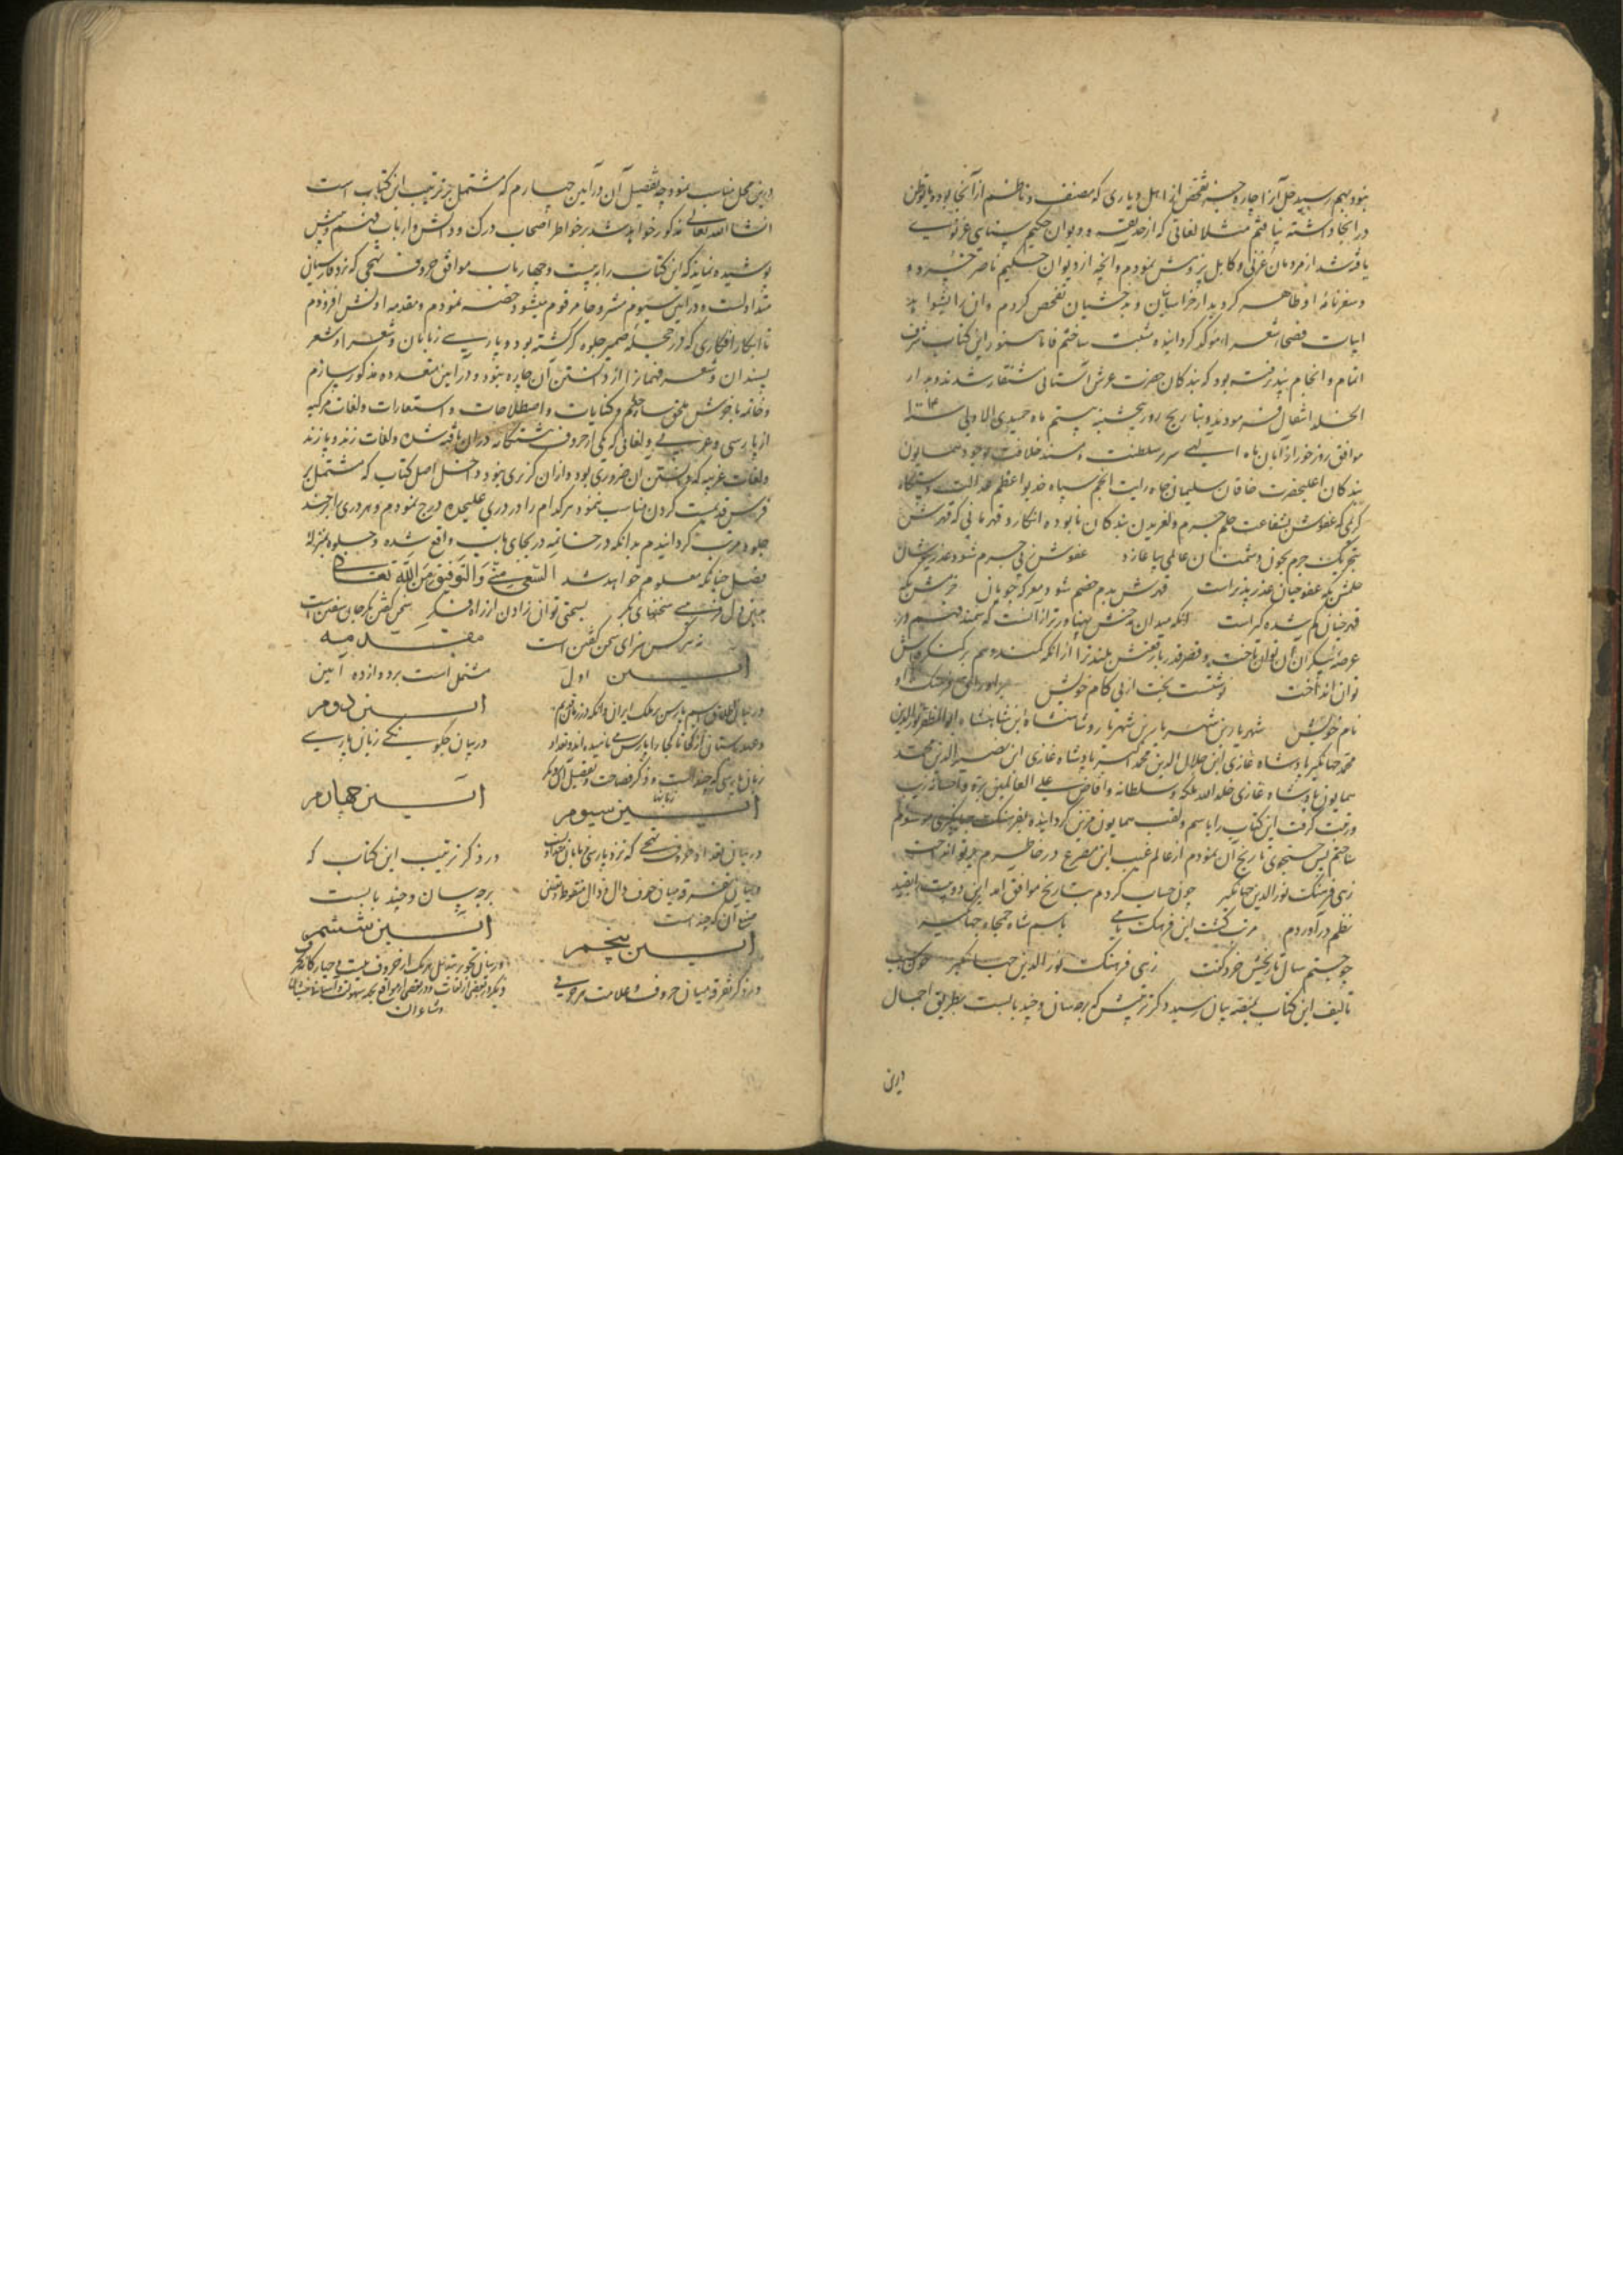 نبود بهم رسید حل آنرا چاره جز تفحص از اهل دیاری که مصنف و ناظم از آنجا بوده یا توطن
در آنجا داشته نیافتم مثلا لغاتی که از حدیقه و دیوان حکیم سنایی غزنوی
یافته شد از مردمان غزنی و کابل پژوهش نمودم و آنچه از دیوان حکیم ناصر خسرو و
و سفرنامه او ظاهر گردید از خراسانیان و بدخشیان تفحص کردم و آن را بشواهد
ابیات فصحا شعرا مؤکد گردانیده مثبت ساختم فاما هنوز این کتاب شرف
اتمام و انجام نپذیرفته بود که بندگان حضرت عرش آستانی شنقار شدند و بدار
الخلد انتقال فرمودند و بتاریخ روز پنجشنبه بیستم ماه جمیدی الاولی سنه ۱۰۱۴
موافق روز خور از آبان ماه الهی سریر سلطنت و مسند خلافت بوجود همایون
بندگان اعلیحضرت خاقان سلیمان جاه رایت انجم سپاه خدیو اعظم عدالت دستگاه
کریمی که عفوش بشفاعت حلم جرم و لغزیدن بندگان نابوده انگارد و قهرمانی که قهرش
بتحریک جرم بخون دشمنان عالمی بیاغازد عفوش زپی جرم شود عذر نیوشان
حلمش که عفو جنان عذرپذیر است قهرش بدم خصم شود معرکه جویان
قهر چنان کم شده گیر است آنکه میدان بخشش پهناورتر از آنست که سمند فهم در
عرصه بیکران آن توان تاخت و قصر قدر رفعتش بلندتر از آنکه کمند وهم بر کنگره اش
توان انداخت نوشتست بخت از پی کام خویش
نام خویش شهریار بن شهریار بن شهریار و شاهنشاه ابن شاهنشاه ابوالمظفر نورالدین
محمد جهانگیر پادشاه غازی ابن جلال الدین محمد اکبر پادشاه غازی ابن نصیر الدین محمد
همایون پادشاه غازی خلد الله ملکه و سلطانه و افاض علی العالمین بره و احسانه زیب
و زینت گرفت این کتاب را باسم و لقب همایون مزین گردانیده بفرهنگ جهانگیری موسوم
ساختم پس جستجوی تاریخ آن نمودم از عالم غیب این مصرع در خاطرم پرتو انداخت
زهی فرهنگ نورالدین جهانگیر چون حساب کردم بتاریخ موافق آمد این دو بیت
نظم درآوردم مرتب گشت این فرهنگ نامی باسم شاه جمجاه جهانگیر
چو جستم سال تاریخش خرد گفت زهی فرهنگ نورالدین جهانگیر چون سبب
تألیف این کتاب بمنصه بیان رسید ذکر ترتیبش که برچه سان و چند بابست بطریق اجمال
درین
درین محل مناسب نمود چه تفصیل آن در آیین چهارم که مشتمل بر ترتیب این کتاب است
انشا الله تعالی مذکور خواهد شد بر خواطر اصحاب درک و دانش و ارباب فهم و بینش
پوشیده نماند که این کتاب را به بیست و چهار باب موافق حروف تهجی که نزد فارسیان
متداولست و در آیین سیوم مشروحا مرقوم میشود حصر نمودم و مقدمه اولش افزودم
تا ابکار افکاری که در حجله ضمیر جلوه گر گشته بود و پارسی زبانان و شعرا و شعر
پسندان و شعر فهمانرا از دانستن آن چاره نبود و در آیین متعدده مذکور سازم
و خاتمه باخرش ملحق ساختم و کنایات و اصطلاحات و استعارات و لغات مرکبه
از پارسی و عربی و لغاتی که یکی از حروف هشتگانه در آن یافته شده و لغات زند و پازند
و لغات غریبه که دانستن آن ضروری بود و از آن گزیری نبود و داخل اصل کتاب که مشتمل بر
فرس قدیمست کردن مناسب ننمود هر کدام را در دری علیحده درج نمودم و هر دری را بر چند
جلوه مرتب گردانیدم بدانکه در خاتمه در بجای باب واقع شده و جلوه بمنزله
فصل چنانکه معلوم خواهد شد السعی منی والتوفیق من الله تعالی
سخنهای بکر بسختی توان زادن از راه فکر سخن گفتن بکر جان سفتن است
نه هر کس سزای سخن گفتن است مقدمه
مشتمل است بر دوازده آیین آیین اول
در بیان اطلاق اسم پارس بر ملک ایران و آنکه در زمان قدیم
و عهد باستان از کجا تا کجا را پارس می نامیده اند و تعداد
آیین دوم
در بیان چگونگی زبان پارسی
زبان پارسی که چند است و ذکر فصاحت و تفضیل آن بر دیگر
زبانها
آیین سیوم
در بیان تعداد حروف تهجی که نزد پارسی زبانان متداولست
و بیان تفرقه میان حرف دال و ذال منقوطه و معنی
صیغ آن که چند است
آیین چهارم
در ذکر ترتیب این کتاب که
برچه سان و چند بابست
آیین پنجم
در ذکر تفرقه میان حروف و علامت هر حرفی
آیین ششم
در بیان تجویز تبدیل هر یک از حروف بیست و چهارگانه بحرف
دیگر در بعضی از لغات و در بعضی از مواقع